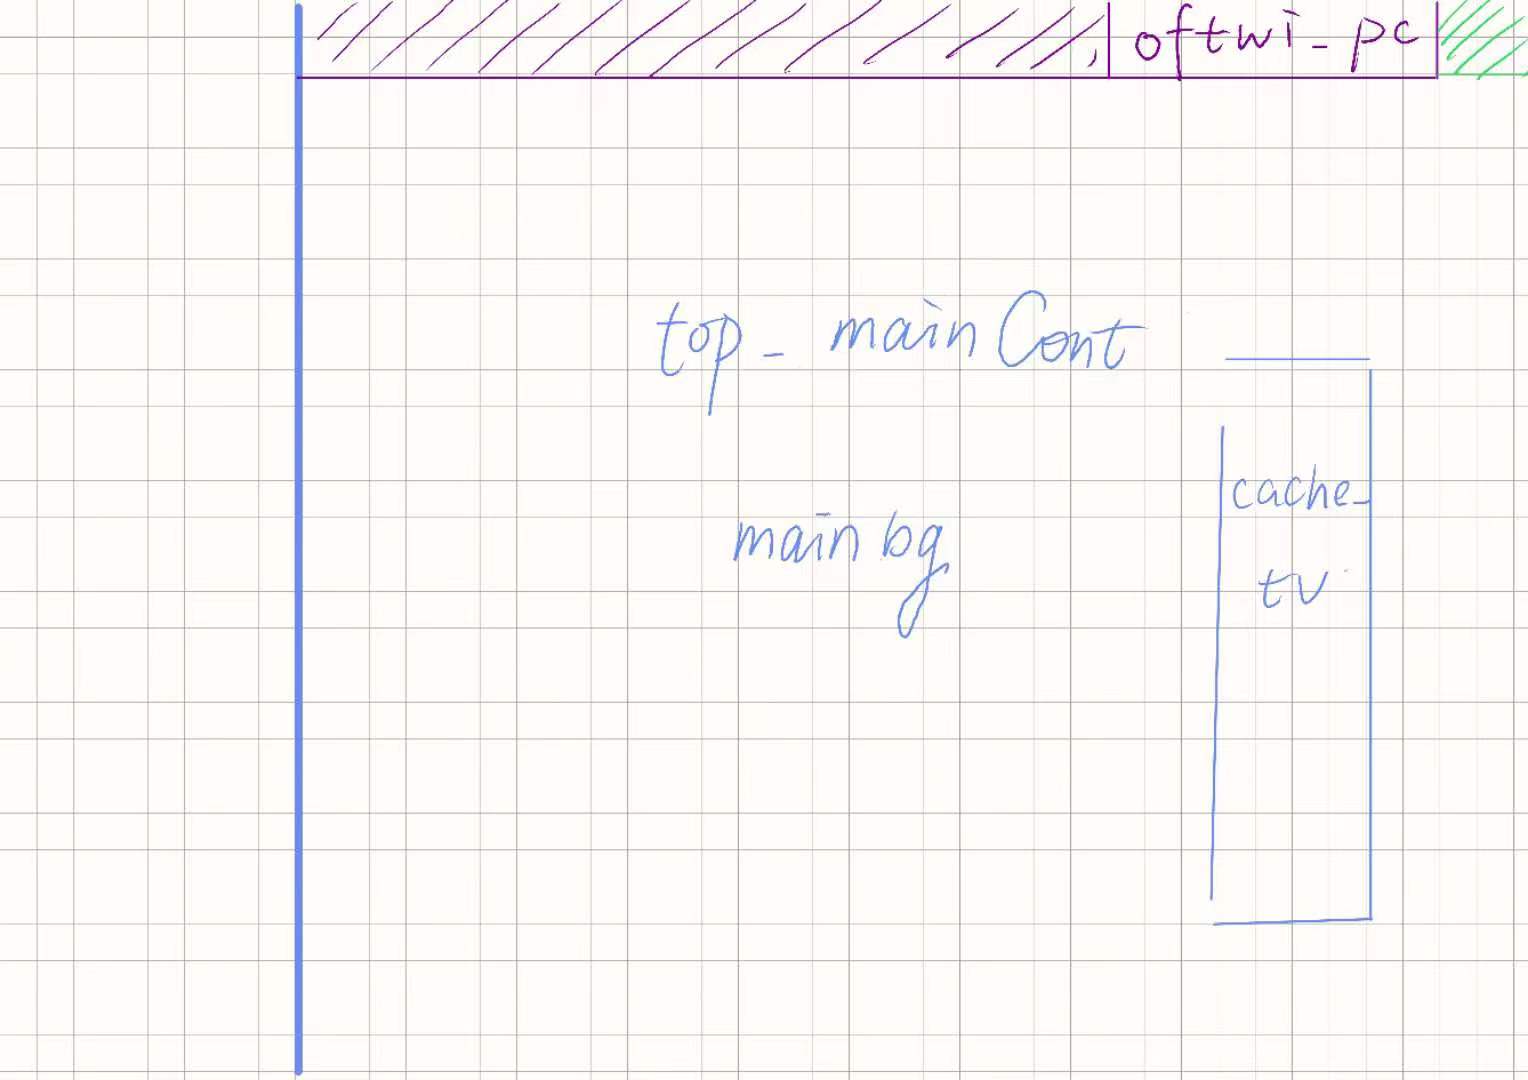 oftwi_pc
top_mainCont
mainbg
cache_
tv